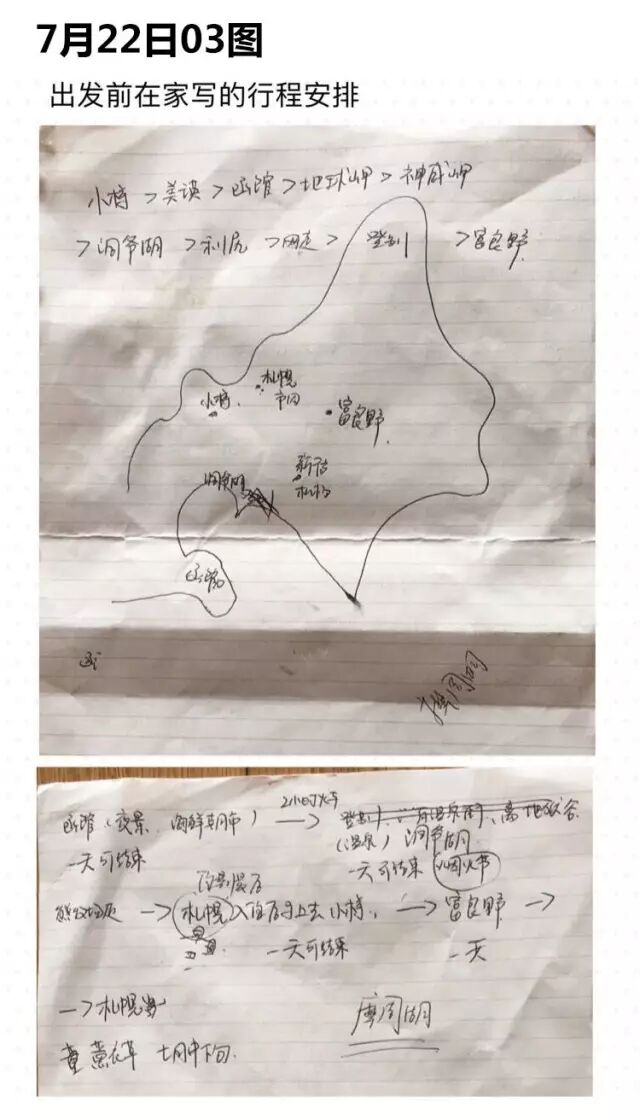 7月22日03图
出发前在家写的行程安排
小樽 > 美瑛 > 函馆 > 地球岬 > 神威岬
> 洞爷湖 > 利尻 > 网走 > 登别 > 富良野
札幌
市内
小樽
富良野
新千
洞爷湖
函馆
函
摩周湖
函馆（夜景、海鲜朝市） 2小时火车 → 登别、
（温泉） 洞爷湖
一天可结束 一天可结束 烟火节
→ 札幌 入住后马上去小樽， → 富良野 →
一天可结束 一天
→ 札幌
摩周湖
查 薰衣草 七月中下旬